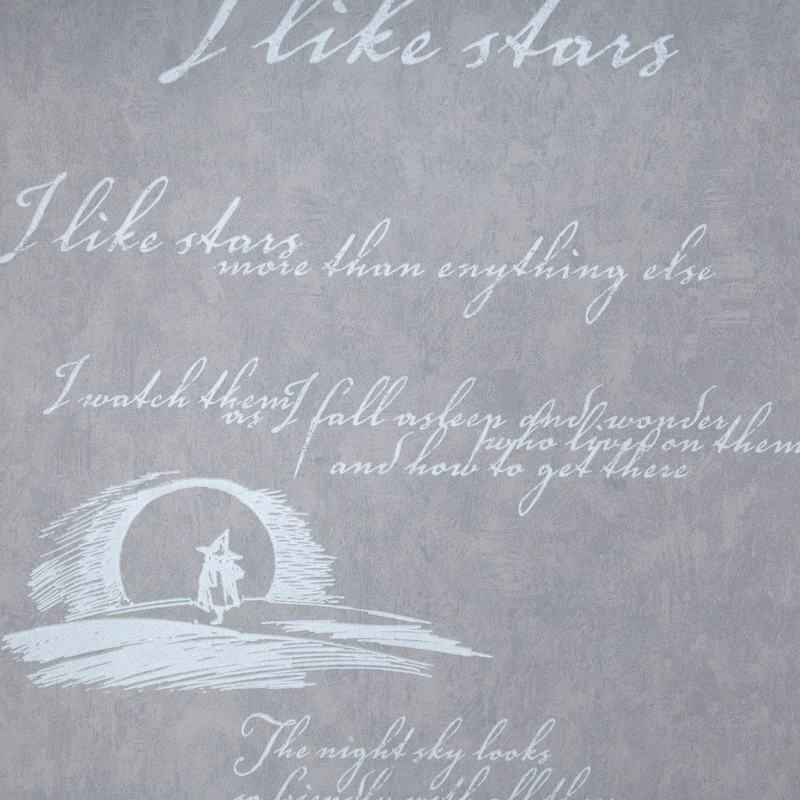 I like stars
I like stars
more than enything else
I watch them
as I fall asleep and wonder
who lives on them
and how to get there
The night sky looks
so friendly with all those